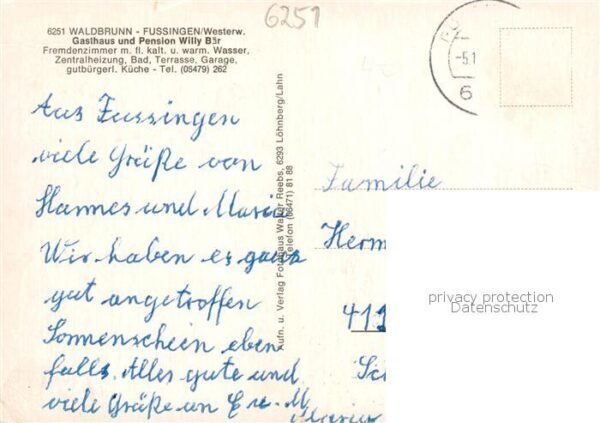 6251
6251 WALDBRUNN - FUSSINGEN/Westerw.
Gasthaus und Pension Willy Bör
Fremdenzimmer m. fl. kalt. u. warm. Wasser,
Zentralheizung, Bad, Terrasse, Garage,
gutbürgerl. Küche - Tel. (06479) 262
-5.1
6
Aus Fussingen
viele Grüße von
Hannes und Maria
Wir haben es ganz
gut angetroffen
Sonnenschein eben
falls. Alles gute und
viele Grüße an E u. M
Maria
Aufn. u. Verlag Fotohaus Walter Reebs, 6293 Löhnberg/Lahn
Telefon (06471) 81 88
Familie
Herm
411
Sc
privacy protection
Datenschutz